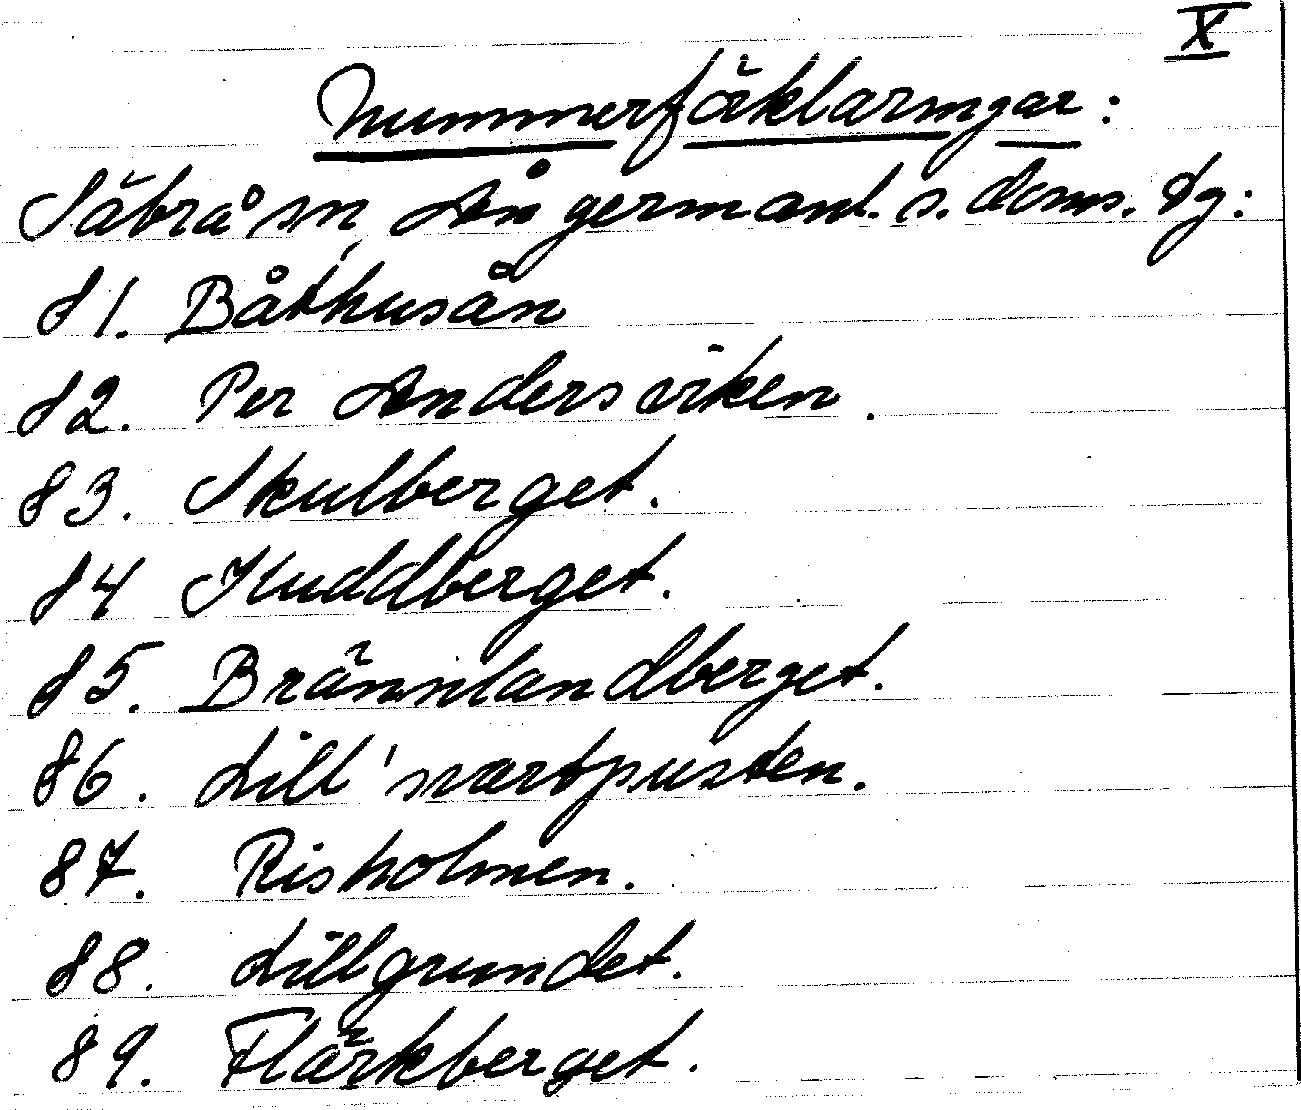 X
Nummerförklaringar:
Säbrå sn, Ångermanl. s. doms. dg:
81. Båthusån
82. Per Andersviken.
83. Skulberget.
84 Kuddberget.
85. Brännlandberget.
86. Lill'svartpusten.
87. Risholmen.
88. Lillgrundet.
89. Flärkberget.